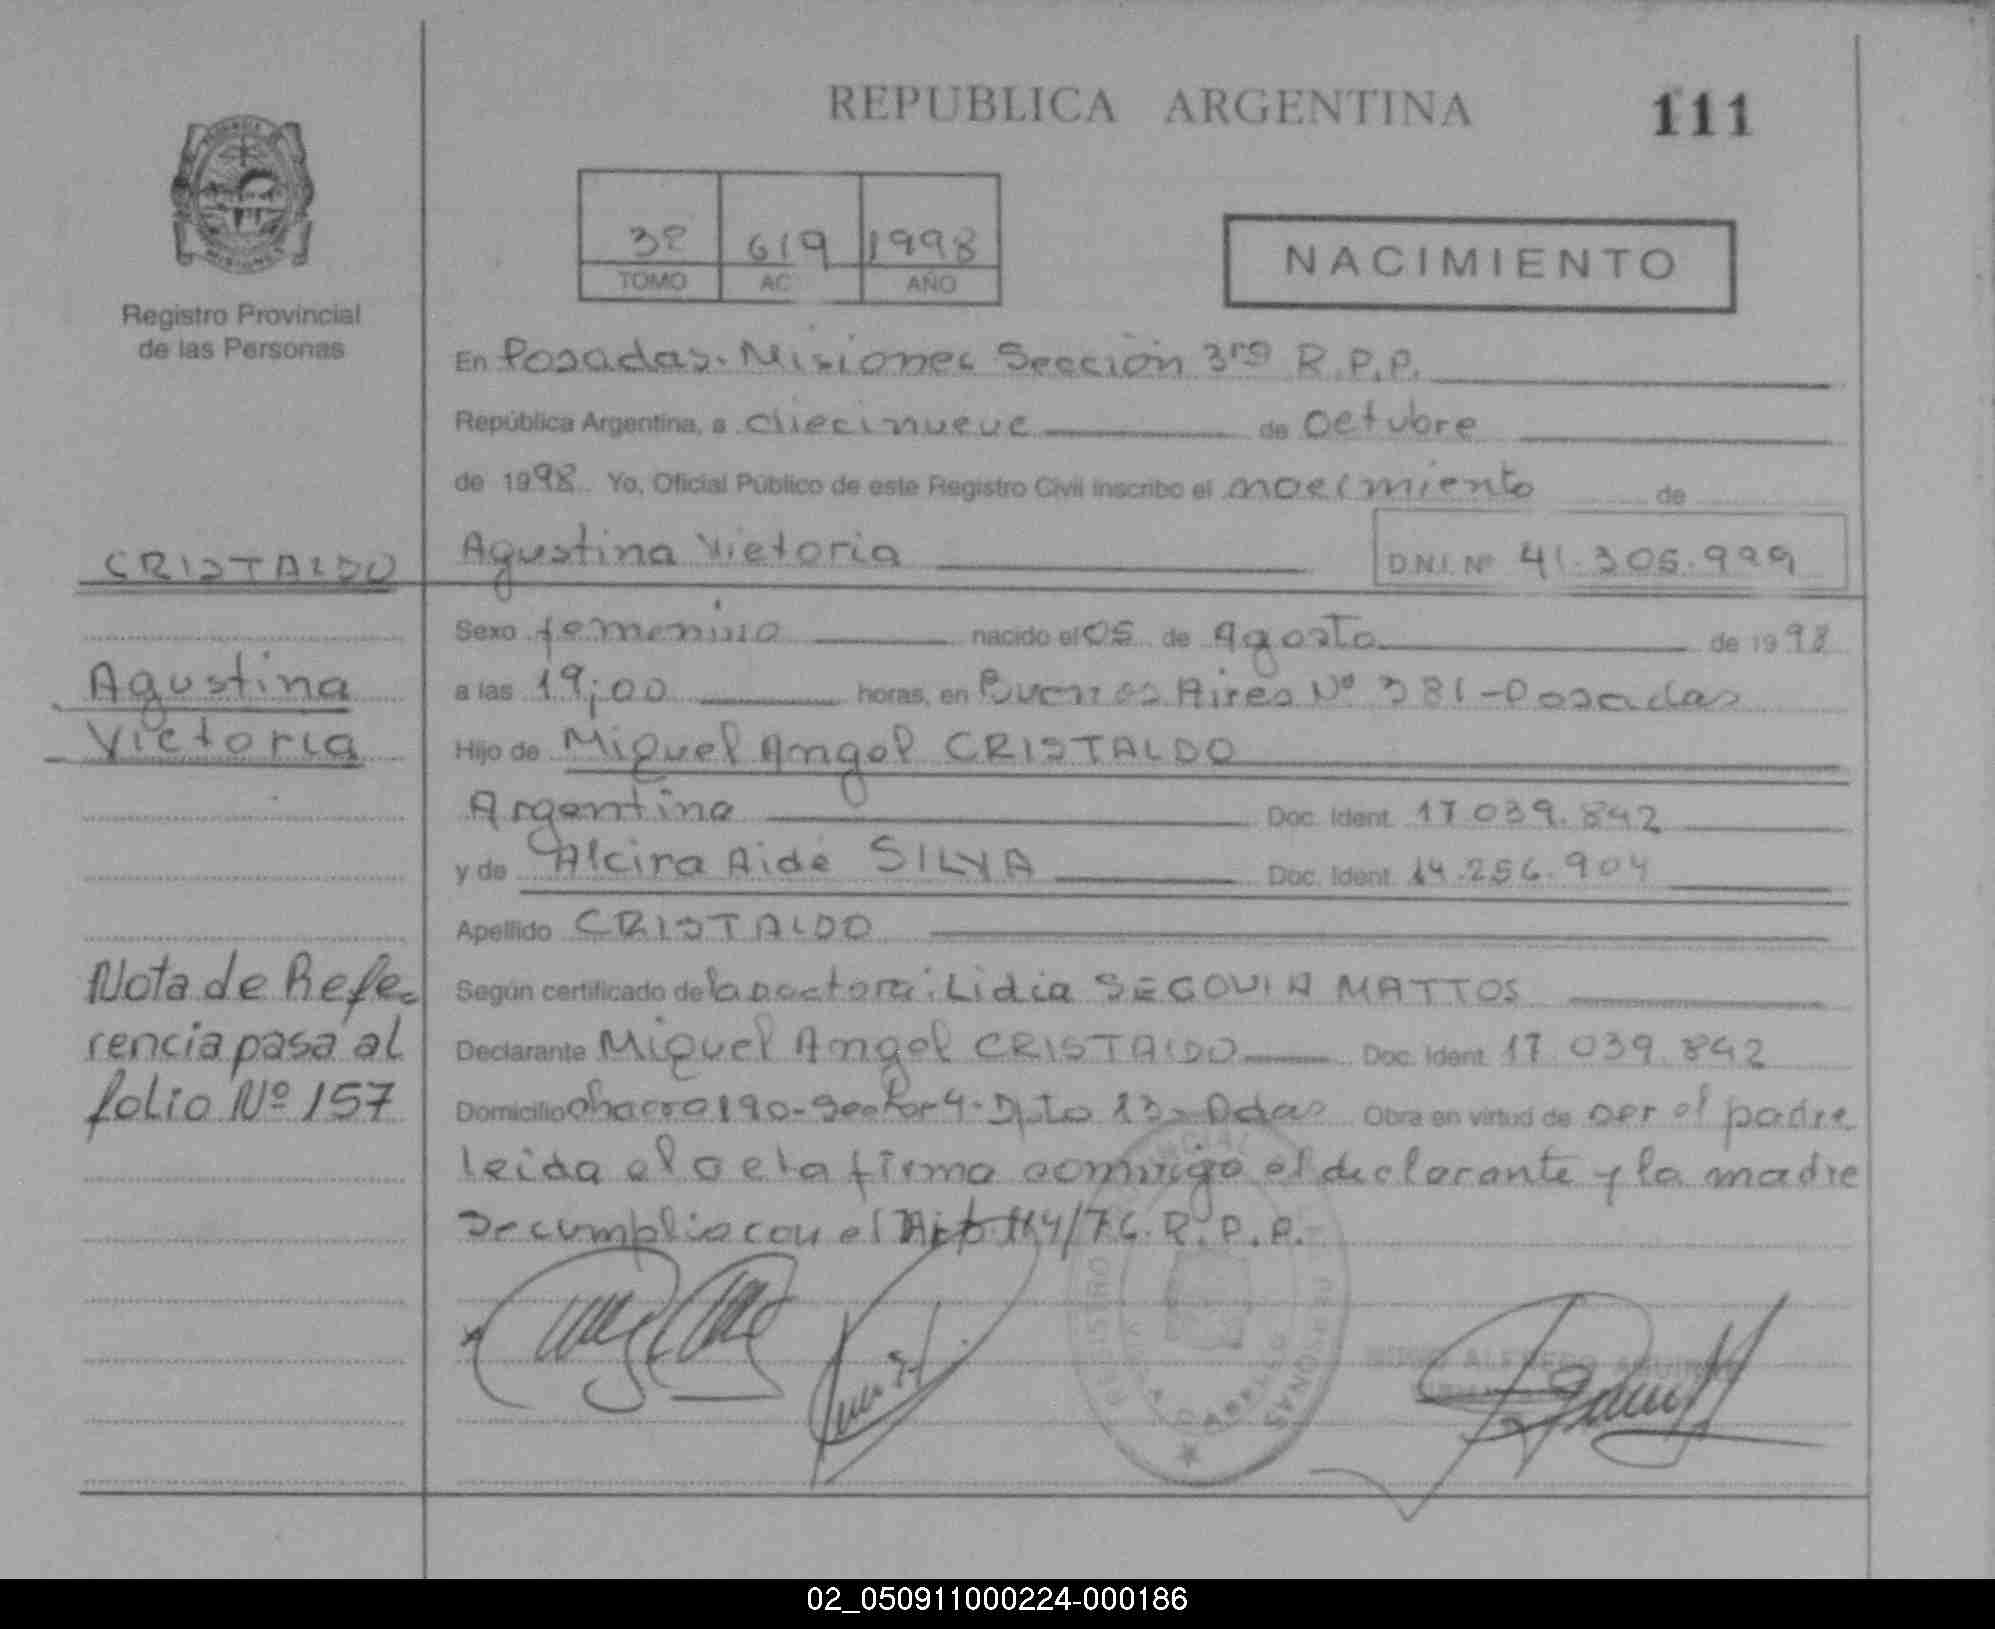 REPUBLICA ARGENTINA
111
3º 619 1998
TOMO AC AÑO
NACIMIENTO
Registro Provincial
de las Personas
En Posadas. Misiones Sección 3ra R.P.P.
República Argentina, a diecinueve de Octubre
de 1998 Yo, Oficial Público de este Registro Civil inscribo el nacimiento de
CRISTALDO
Agustina Victoria
D.N.I. Nº 41.305.999
Sexo femenino nacido el 05 de Agosto de 1998
Agustina
a las 19;00 horas, en Buenos Aires Nº 381-Posadas
Victoria
Hijo de Miguel Angel CRISTALDO
Argentina Doc. Ident. 17.039.842
y de Alcira Aidé SILVA Doc. Ident. 14.256.904
Apellido CRISTALDO
Nota de Refe-
Según certificado de la Doctora: Lidia SEGOVIA MATTOS
rencia pasa al
Declarante Miguel Angel CRISTALDO Doc. Ident. 17.039.842
folio Nº 157
Domicilio Chacra 190-Sector 4-Dpto 13- Pdas Obra en virtud de ser el padre
leida el acta firma conmigo el declarante y la madre
Se cumplio con el Art 114/76. R.P.P.
REGISTRO PROVINCIAL DE PERSONAS
02_050911000224-000186